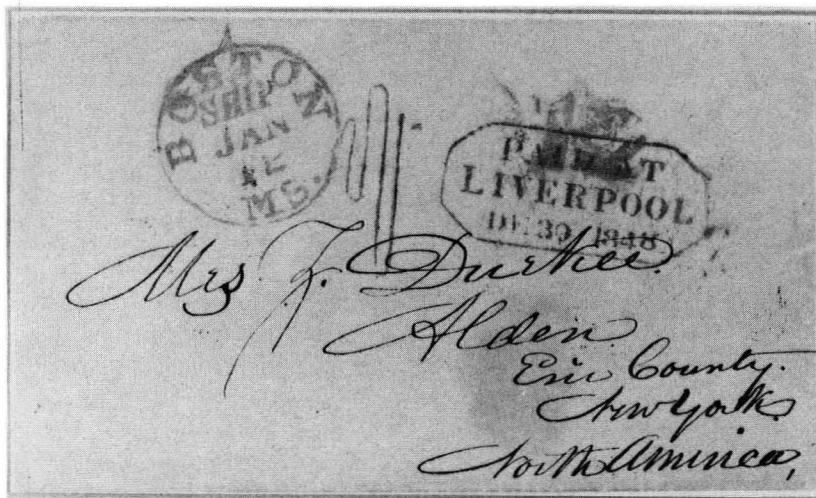 BOSTON
SHIP
JAN
MS.
PAID AT
LIVERPOOL
DE 30 1848
Mrs F. Durkee.
Alden.
Erie County.
New York.
North America,